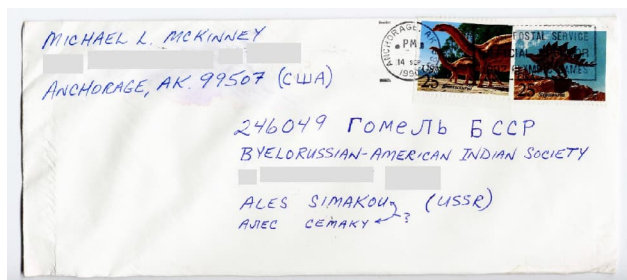 MICHAEL L. MCKINNEY
ANCHORAGE, AK. 99507 (США)
ANCHORAGE, AK
PM
14 SEP
1990
POSTAL SERVICE
25
25
246049 ГОМЕЛЬ БССР
BYELORUSSIAN-AMERICAN INDIAN SOCIETY
ALES SIMAKOU (USSR)
АЛЕС СЕМАКУ ?